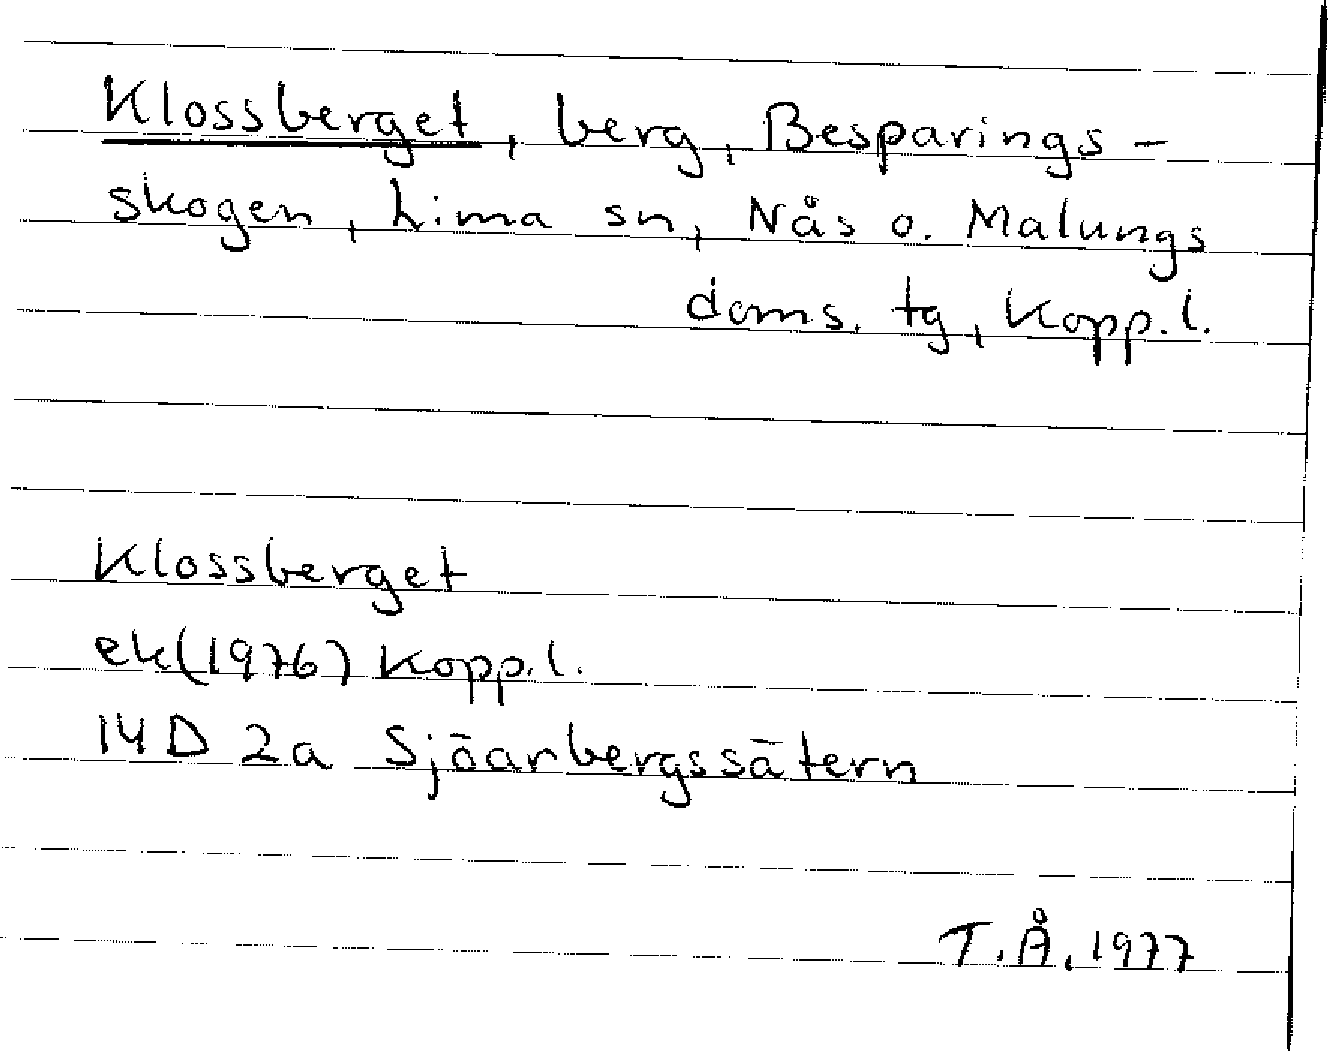 Klossberget, berg, Besparings-
skogen, Lima sn, Nås o. Malungs
doms. tg, Kopp.l.
Klossberget
ek(1976) Kopp.l.
14D 2a Sjöarbergssätern
T.Å. 1977